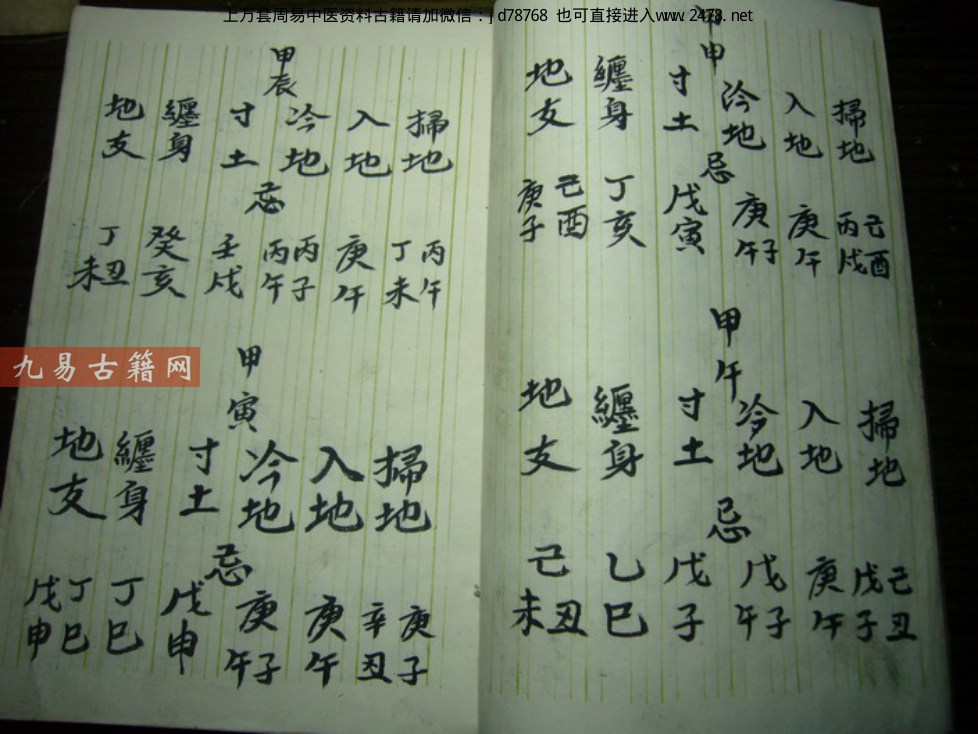 上万套周易中医资料古籍请加微信:jd78768 也可直接进入www.2478.net
甲申
掃地
入地
冷地
寸土
纏身
地支
忌
己酉
丙戌
庚午
庚子午
戊寅
丁亥
己酉
庚子
甲午
掃地
入地
冷地
寸土
纏身
地支
忌
己丑
戊子
庚午
戊子午
戊子
乙巳
己丑未
甲辰
掃地
入地
冷地
寸土
纏身
地支
忌
丙午
丁未
庚午
丙子
丙午
壬戌
癸亥
丁丑未
甲寅
掃地
入地
冷地
寸土
纏身
地支
忌
庚子
辛丑
庚午
庚子午
戊申
丁巳
丁巳
戊申
九易古籍网